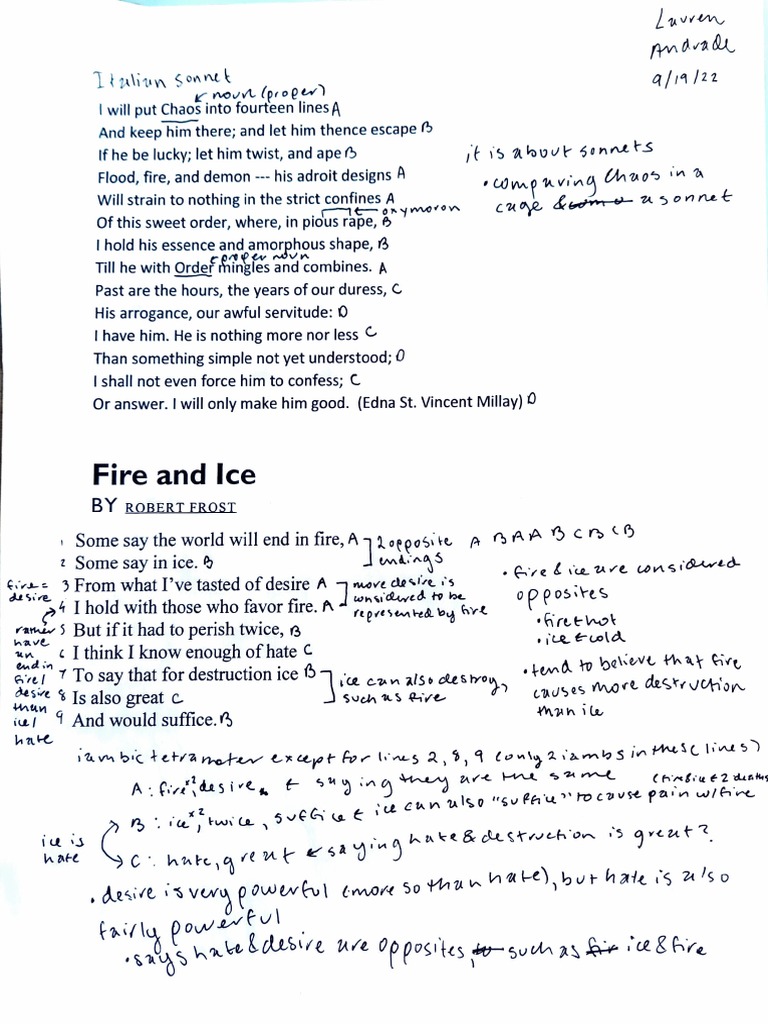 Lauren
Andrade
9/19/22
Italian sonnet
noun (proper)
I will put Chaos into fourteen lines A
And keep him there; and let him thence escape B
If he be lucky; let him twist, and ape B
Flood, fire, and demon --- his adroit designs A
Will strain to nothing in the strict confines A
oxymoron
Of this sweet order, where, in pious rape, B
I hold his essence and amorphous shape, B
proper noun
Till he with Order mingles and combines. A
Past are the hours, the years of our duress, C
His arrogance, our awful servitude: D
I have him. He is nothing more nor less C
Than something simple not yet understood; D
I shall not even force him to confess; C
Or answer. I will only make him good. (Edna St. Vincent Millay) D
it is about sonnets
• comparing Chaos in a
cage & a sonnet
Fire and Ice
BY ROBERT FROST
1 Some say the world will end in fire, A
2 Some say in ice. B
3 From what I've tasted of desire A
4 I hold with those who favor fire. A
5 But if it had to perish twice, B
6 I think I know enough of hate C
7 To say that for destruction ice B
8 Is also great C
9 And would suffice. B
2 opposite
endings
A B A A B C B C B
more desire is
considered to be
represented by fire
ice can also destroy,
such as fire
fire =
desire
rather
have
an
end in
fire/
desire
than
ice/
hate
• fire & ice are considered
opposites
• fire hot
• ice cold
• tend to believe that fire
causes more destruction
than ice
iambic tetrameter except for lines 2, 8, 9 (only 2 iambs in these lines)
A: fire x2, desire ← saying they are the same
(fire & ice 2 deaths
B: ice x2, twice, suffice ← ice can also "suffice" to cause pain w/ fire
ice is
hate
C: hate, great ← saying hate & destruction is great?
• desire is very powerful (more so than hate), but hate is also
fairly powerful
• says hate & desire are opposites, such as ice & fire